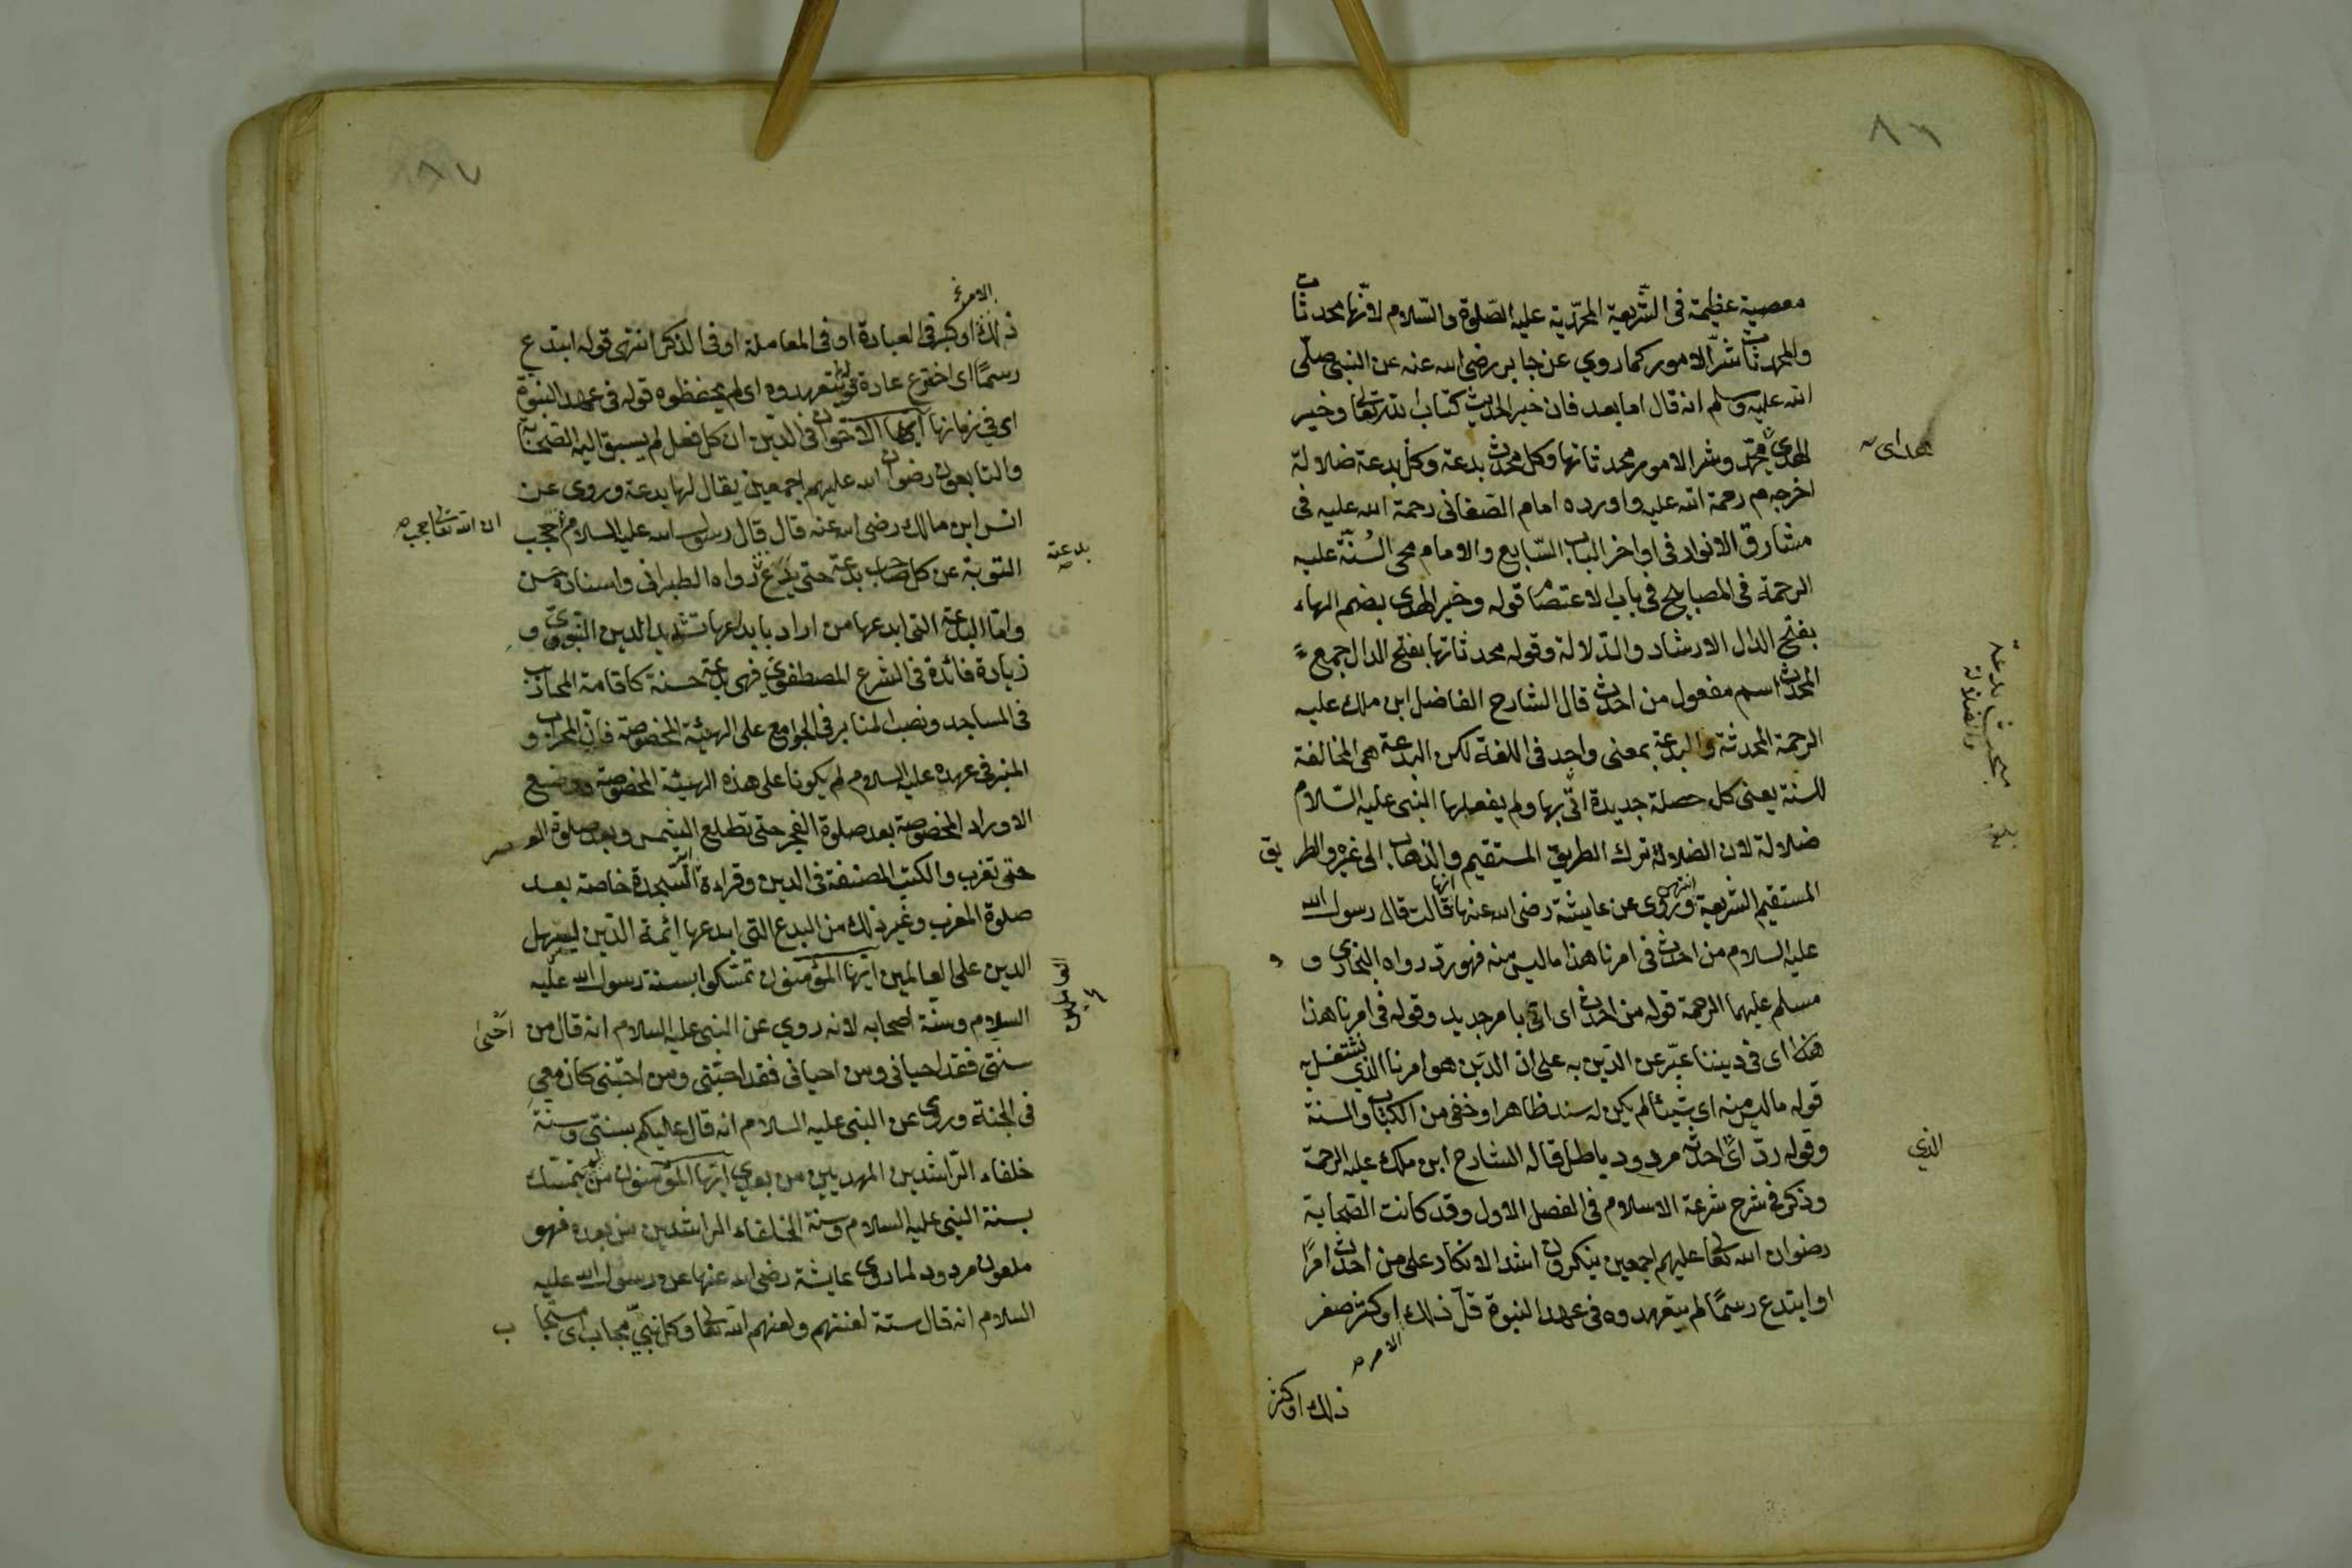 ٨٦
معصية عظيمة فى الشّريعة المحمّدية عليه الصّلوة والسّلام لانّها محدثات
والمحدثات شرّ الامور كما روي عن جابر رضى الله عنه عن النبى صلّى
الله عليه وسلم انه قال اما بعد فان خير الحديث كتاب الله تعا وخير
الهدى هدى محمّد وشر الامور محدثاتها وكل محدث بدعة وكل بدعة ضلالة
اخرجه م رحمة الله عليه واورده امام الصّغانى رحمة الله عليه فى
مشارق الانوار فى اواخر الباب السّابع والامام محى السُنّة عليه
الرحمة فى المصابيح فى باب الاعتصام قوله وخير الهدى بضم الهاء
بفتح الدال الارشاد والدّلالة وقوله محدثاتها بفتح الدال جمع
المحدث اسم مفعول من احدث قال الشارح الفاضل ابن ملك عليه
الرحمة المحدثة والبدعة بمعنى واحد فى اللغة لكن البدعة هى المخالفة
للسنة يعنى كل خصلة جديدة اتّى بها ولم يفعلها النبى عليه السّلام
ضلالة لان الضلالة ترك الطريق المستقيم والذهاب الى غيره والطريق
المستقيم الشريعة انتهى وروى عن عايشة رضى الله عنها انها قالت قال رسول الله
عليه السلام من احدث فى امرنا هذا ما ليس منه فهو ردّ رواه البخارى و
مسلم عليهما الرحمة قوله من احدث اى اتى بامر جديد وقوله فى امرنا هذا
هذا اى فى ديننا عبّر عن الدّين به على ان الدّين هو امرنا الذى نشتغل به
قوله ما ليس منه اى شيئا لم يكن له سند ظاهر او خفى من الكتاب والسنة
وقوله ردّ اى الذي احدثه مردود باطل قاله الشارح ابن ملك عليه الرحمة
وذكر فى شرح شرعة الاسلام فى الفصل الاول وقد كانت الصّحابة
رضوان الله تعا عليهم اجمعين ينكرون اشد الانكار على من احدث امرًا
او ابتدع رسمًا لم يتعهدوه فى عهد النبوة قلّ ذلك او كثر صغر
الامر
ذلك او كثر
مبحث بدعة
والضلالة
٨٧
الامر
ذلك او كبر فى العبادة او فى المعاملة او فى الذكر انتهى قوله ابتدع
رسمًا اى اخترع عادة قوله لم يتعهدوه اى لم يحفظوه قوله فى عهد النبوة
اى فى زمانها ايها الاخوان فى الدّين ان كل فعل لم يسبق اليه الصّحابة
والتابعون رضوان الله عليهم اجمعين يقال لها بدعة وروى عن
انس ابن مالك رضى الله عنه قال قال رسول الله عليه السلام ان الله تعا حجب
التوبة عن كل صاحب بدعة حتى يدع بدعته رواه الطبرانى واسناده حسن
وامّا البدعة التى ابدعها من اراد بابداعها تشييد الدين النبوىّ و
زيادة فائدة فى الشرع المصطفوى فهى بدعة حسنة كاقامة المحارب
فى المساجد ونصب المنابر فى الجوامع على الهيئة المخصوصة فانّ المحراب و
المنبر فى عهده عليه السلام لم يكونا على هذه الهيئة المخصوصة ووضع
الاوراد المخصوصة بعد صلوة الفجر حتى تطلع الشمس وبعد صلوة العصر
حتى تغرب والكتب المصنفة فى الدين وقراءة السّجدة خاصة بعد
صلوة المغرب وغير ذلك من البدع التى ابدعها ائمة الدّين ليسهل
الدين على العالمين ايّها المؤمنون تمسّكوا بسنة رسول الله عليه
السلام وسنّة اصحابه لانه روي عن النبى عليه السلام انه قال من احيى
سنتى فقد احيانى ومن احيانى فقد احبّنى ومن احبّنى كان معى
فى الجنة وروى عن النبى عليه السلام انه قال عليكم بسنتى وسنة
خلفاء الرّاشدين المهديين من بعدى ايّها المؤمنون من لم يتمسّك
بسنة النبى عليه السلام وسنة الخلفاء الراشدين من بعده فهو
ملعون مردود لما روى عايشة رضى الله عنها عن رسول الله عليه
السلام انه قال ستة لعنتهم ولعنهم الله تعا وكل نبىّ مجاب اى مستجاب